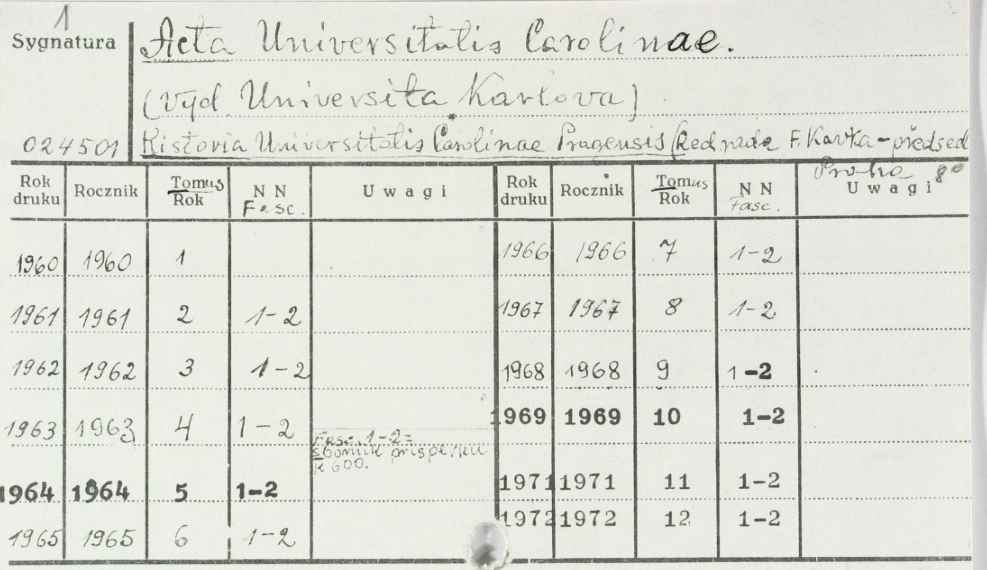 1
Sygnatura
Acta Universitatis Carolinae.
(Vyd. Universita Karlova)
024501
Historia Universitatis Carolinae Pragensis (Red rada F. Kavka - předsed
Praha 8°
Rok druku Rocznik Tomus Rok N N Fasc. Uwagi Rok druku Rocznik Tomus Rok N N Fasc. Uwagi
1960 1960 1 1966 1966 7 1-2
1961 1961 2 1-2 1967 1967 8 1-2
1962 1962 3 1-2 1968 1968 9 1-2
1963 1963 4 1-2 1969 1969 10 1-2
Fasc. 1-2 =
sborník příspěvků
k 600.
1964 1964 5 1-2 1971 1971 11 1-2
1965 1965 6 1-2 1972 1972 12 1-2